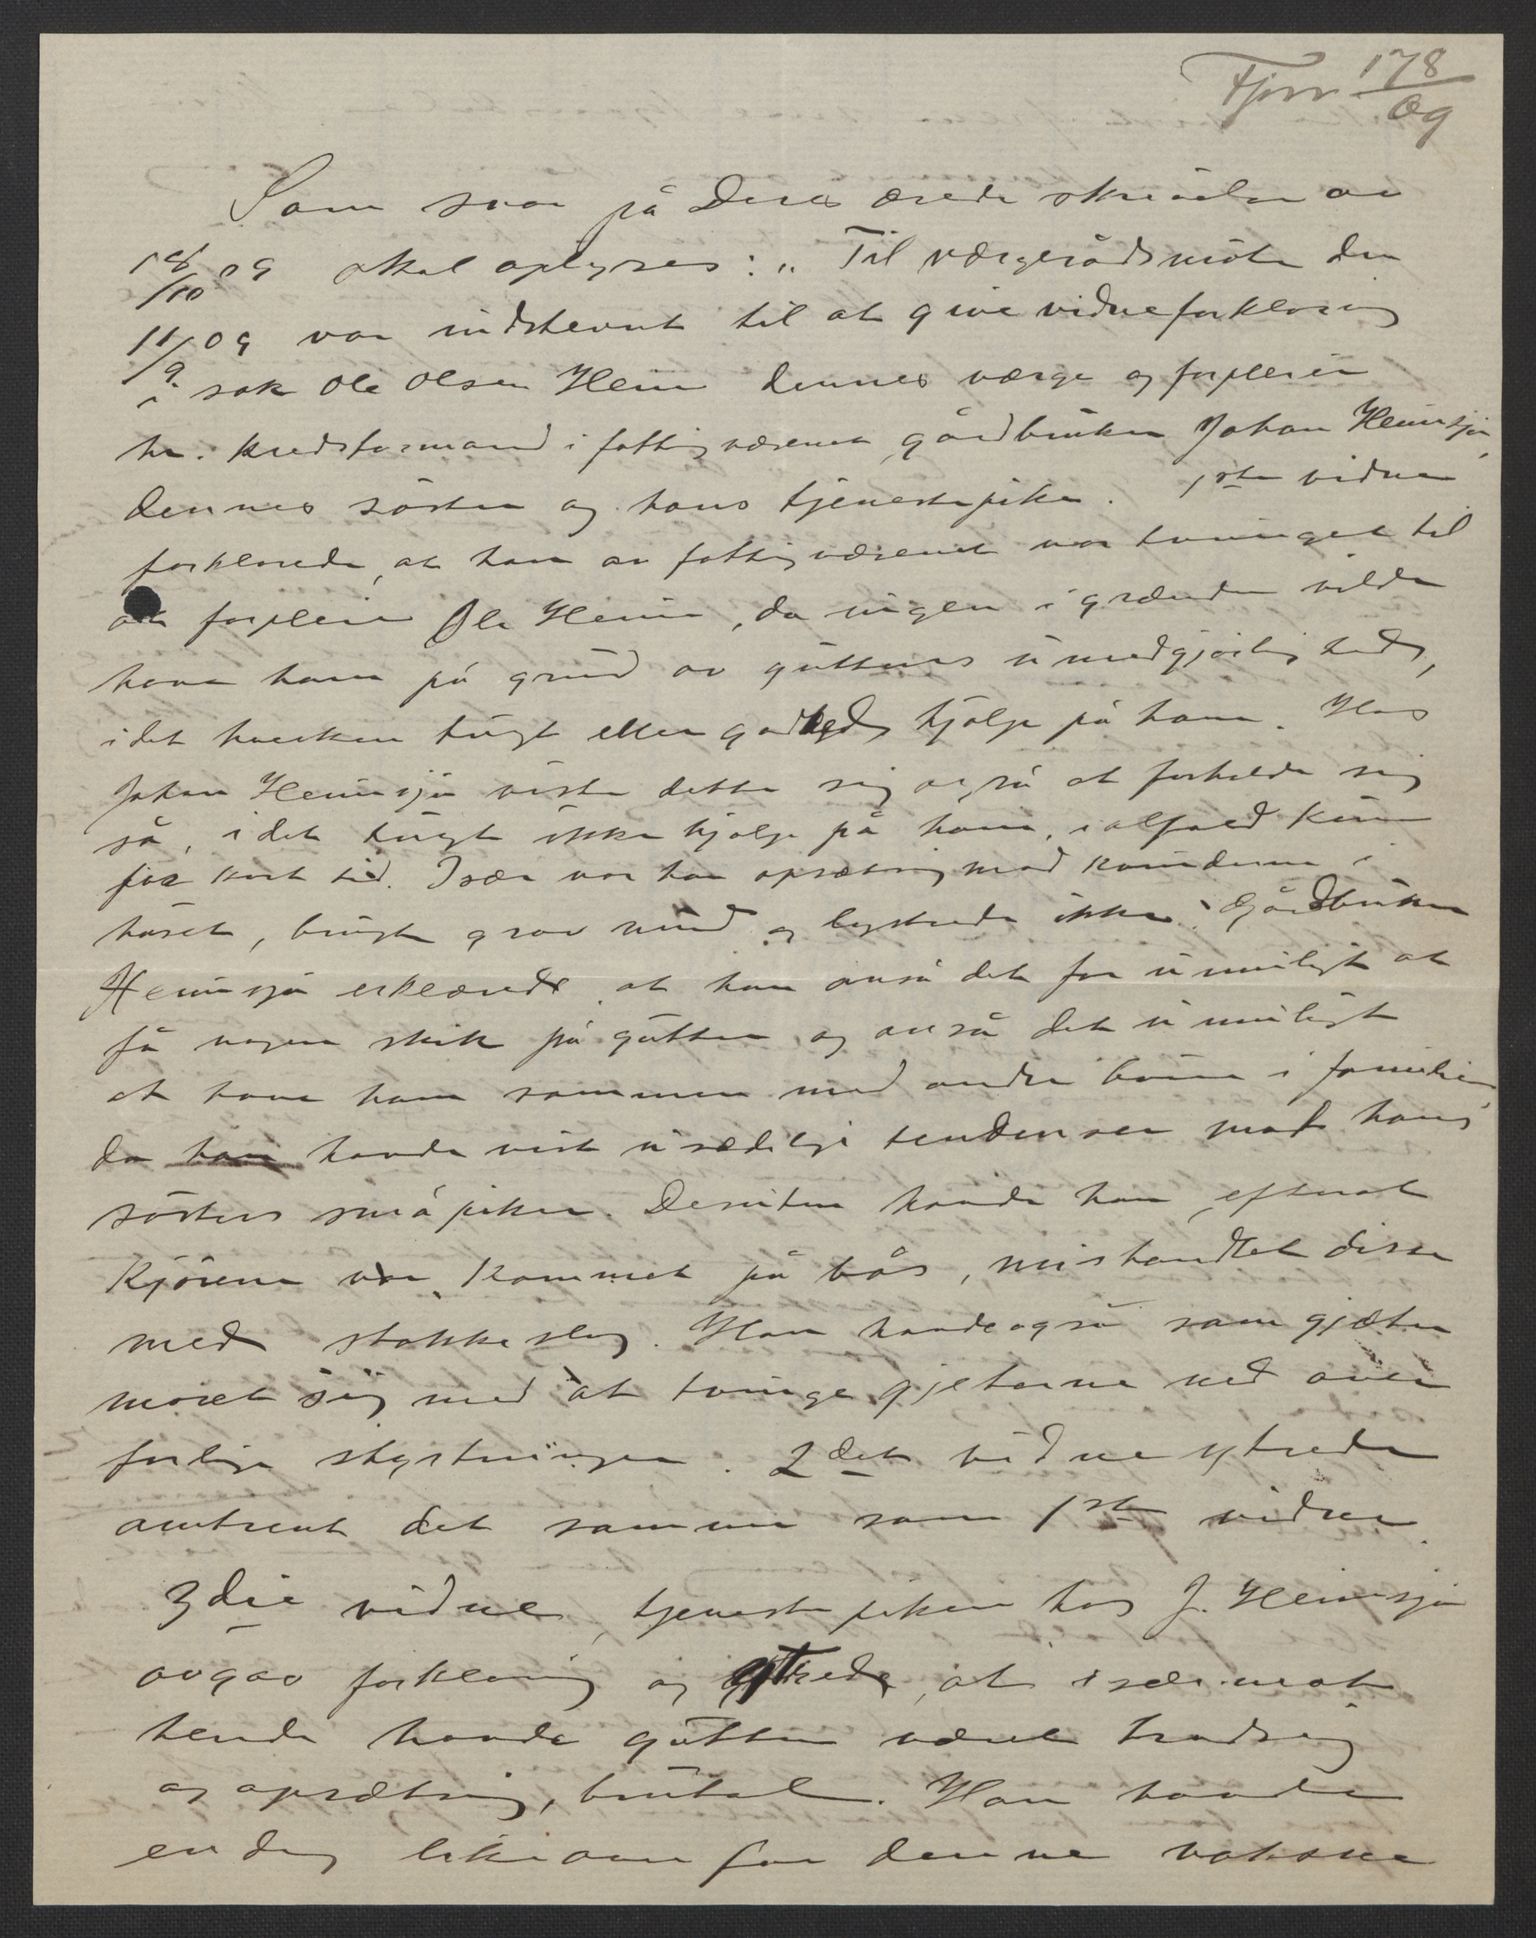 Fjorr 178/09
Som svar på Deres ærede skrivelse av
18/10 09 skal oplyses: „Til vergerådsmöte den
11/9 09 var indstevnt til at give vidneforklaring
i sak Ole Olsen Heim dennes værge og forpleier
hr. kredsformand i fattigvæsenet gårdbruker Johan Heimsjø,
dennes söster og hans tjenestepike. 1ste vidne
forklarede, at han av fattigvæsenet var tvunget til
at forpleie Ole Heim, da ingen i grænden vilde
have ham på grund av guttens umedgjörlighed,
idet hverken tugt eller godhed hjalp på ham. Hos
Johan Heimsjø viste dette sig også at forholde sig
så, idet tugt ikke hjalp på ham, ialfald kun
for kort tid. Især var han opsætsig mod kvinderne i
huset, brugte grov mund og lystrede ikke. Gårdbruker
Heimsjø erklærede, at han anså det for umuligt at
få nogen skik på gutten og anså det umuligt
at have ham sammen med andre börn i familien,
da havde vist usædelige tendenser mot hans
sösters småpiker. Desuten havde han, efterat
kjörene var kommet på bås, mishandlet disse
med stokkeslag. Han havde også som gjæter
moret sig med at tvinge gjeterne ned over
farlige skrænter. 2det vidne ytrede
omtrent det samme som 1ste vidne.
3die vidne, tjenestepiken hos J. Heimsjø
avgav forklaring og ytrede, at især mot
hende havde gutten været trodsig
og opsætsig, brutal. Han havde
endog likeoverfor denne voksne